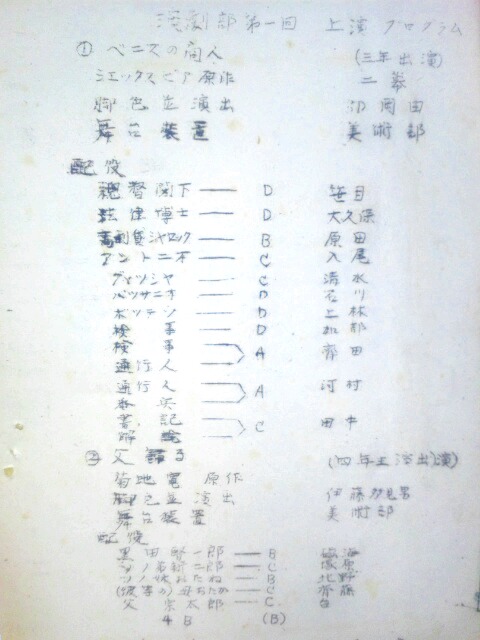 演劇部第一回 上演プログラム
① ベニスの商人 (三年出演)
シエックスピア原作 二幕
脚色並演出
舞台装置 美術部
配役
総督閣下 D 笹目
法律博士 D 大久保
高利貸シャロック B 原田
アントニオ C 入尾
グラツシヤ C 清水
バツサニオ D 石川
D 上林
検事 D
検事 A 齋田
通行人
通行人 A 河村
書記 C 田中
② 父帰る (四年生演出演)
菊地寛 原作
脚色並演出 伊藤
舞台装置 美術部
配役
黒田賢一郎 B
〃ノ弟新二郎 C 塚原
〃ノ妹おたね B 北野
(彼等の母おたか C 齋藤
父 宗太郎 C
4B (B)